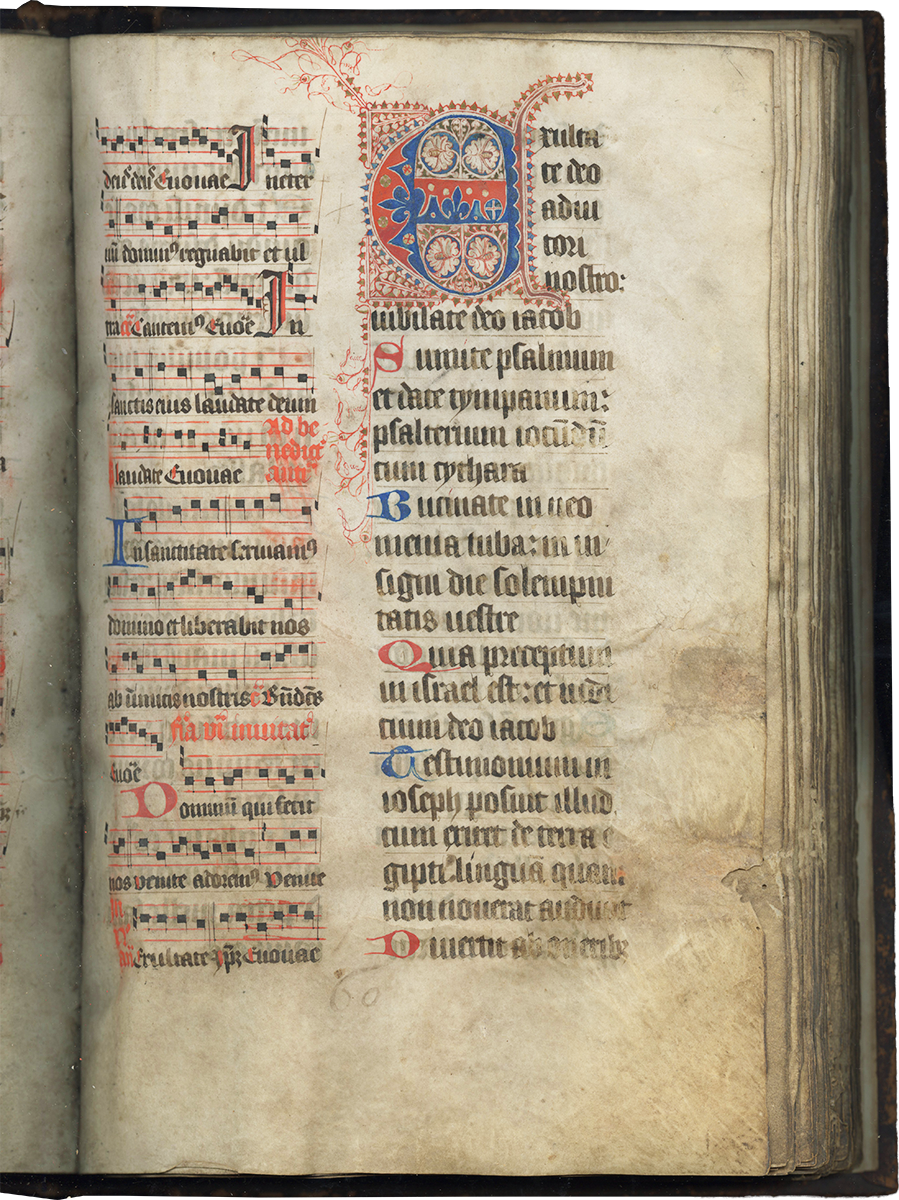 deus deus Euouae In eter
num dominus regnabit et ul
tra Cantemus Euouae In
sanctis eius laudate deum
Ad be
nedict
laudate Euouae
In sanctitate seruiamus
domino et liberabit nos
ab inimicis nostris
inuitat
Euouae
Dominum qui fecit
nos venite adoremus Venite
Exultate Euouae
Exulta
te deo
adiu
tori
nostro:
iubilate deo iacob
Sumite psalmum
et date tympanum:
psalterium iocundum
cum cythara
Bucinate in neo
menia tuba: in in
signi die solempni
tatis uestre
Quia preceptum
in israel est: et iudi
cium deo iacob
Testimonium in
ioseph posuit illud
cum exiret de terra e
gipti linguam quam
non nouerat audiuit
Diuertit ab oneribus
60